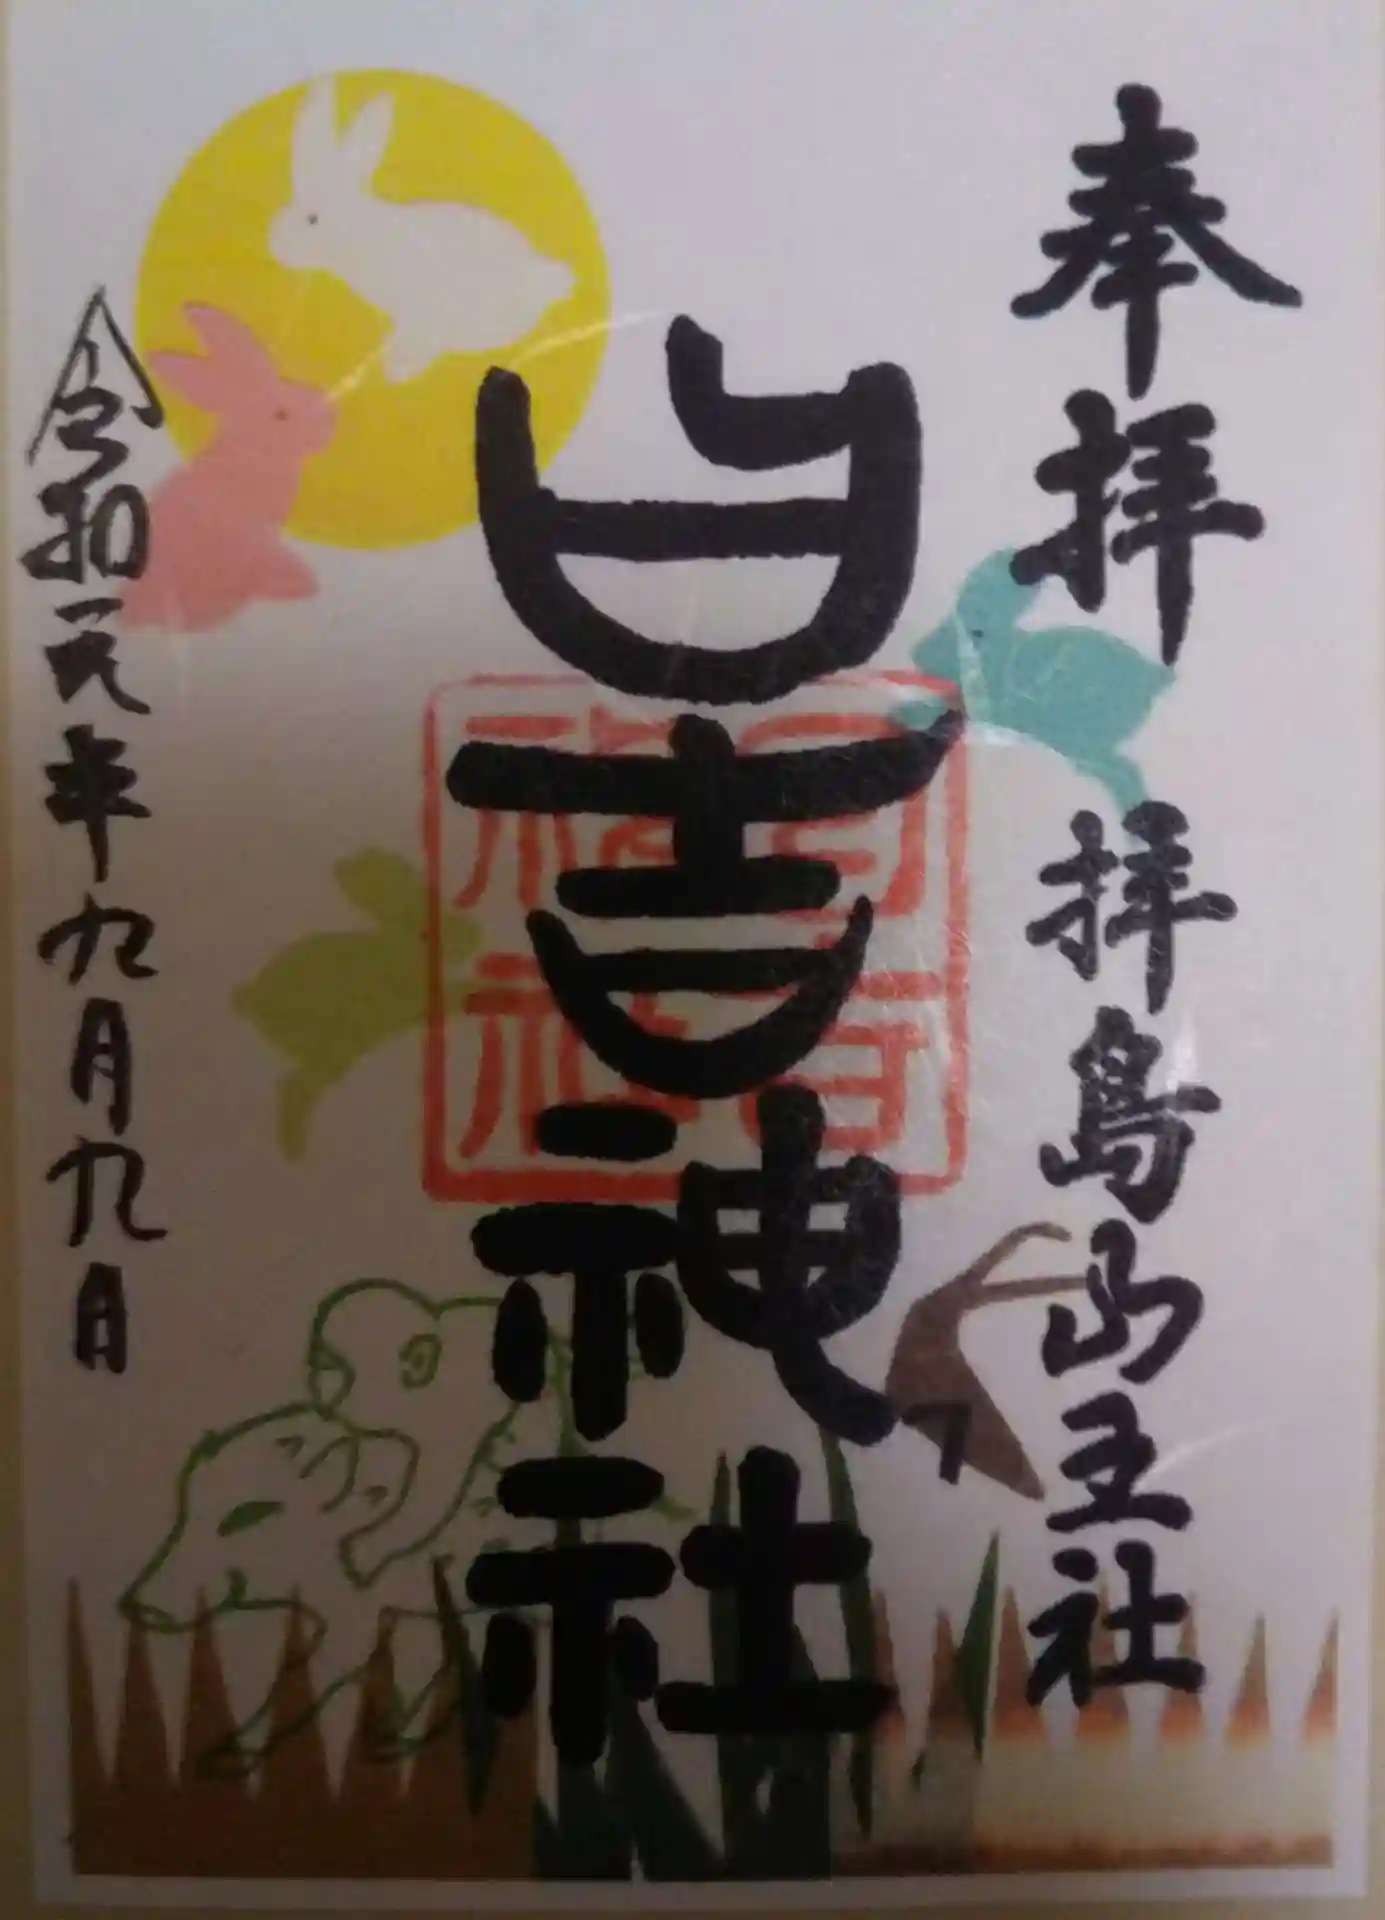 奉拝 拝島山王社
日吉神社
令和元年九月九日